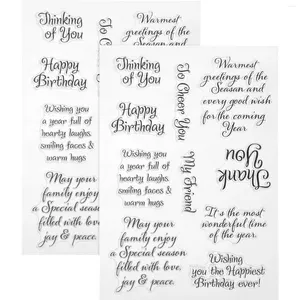 Thinking
of You
Warmest
greetings of the
Happy
Birthday
Wishing you
a year full of
hearty laughs,
smiling faces &
warm hugs
May your
family enjoy
a Special season
filled with love,
jay & peace.
Thinking
of You
To Cheer You
Warmest
greetings of the
Season and
every good wish
for the coming
Year
Happy
Birthday
Thank
You
Wishing you
a year full of
hearty laughs,
smiling faces &
warm hugs
My Friend
It's the most
wonderful time
of the year.
May your
family enjoy
a Special season
filled with love,
jay & peace.
Wishing
you the
Happiest
Birthday ever!